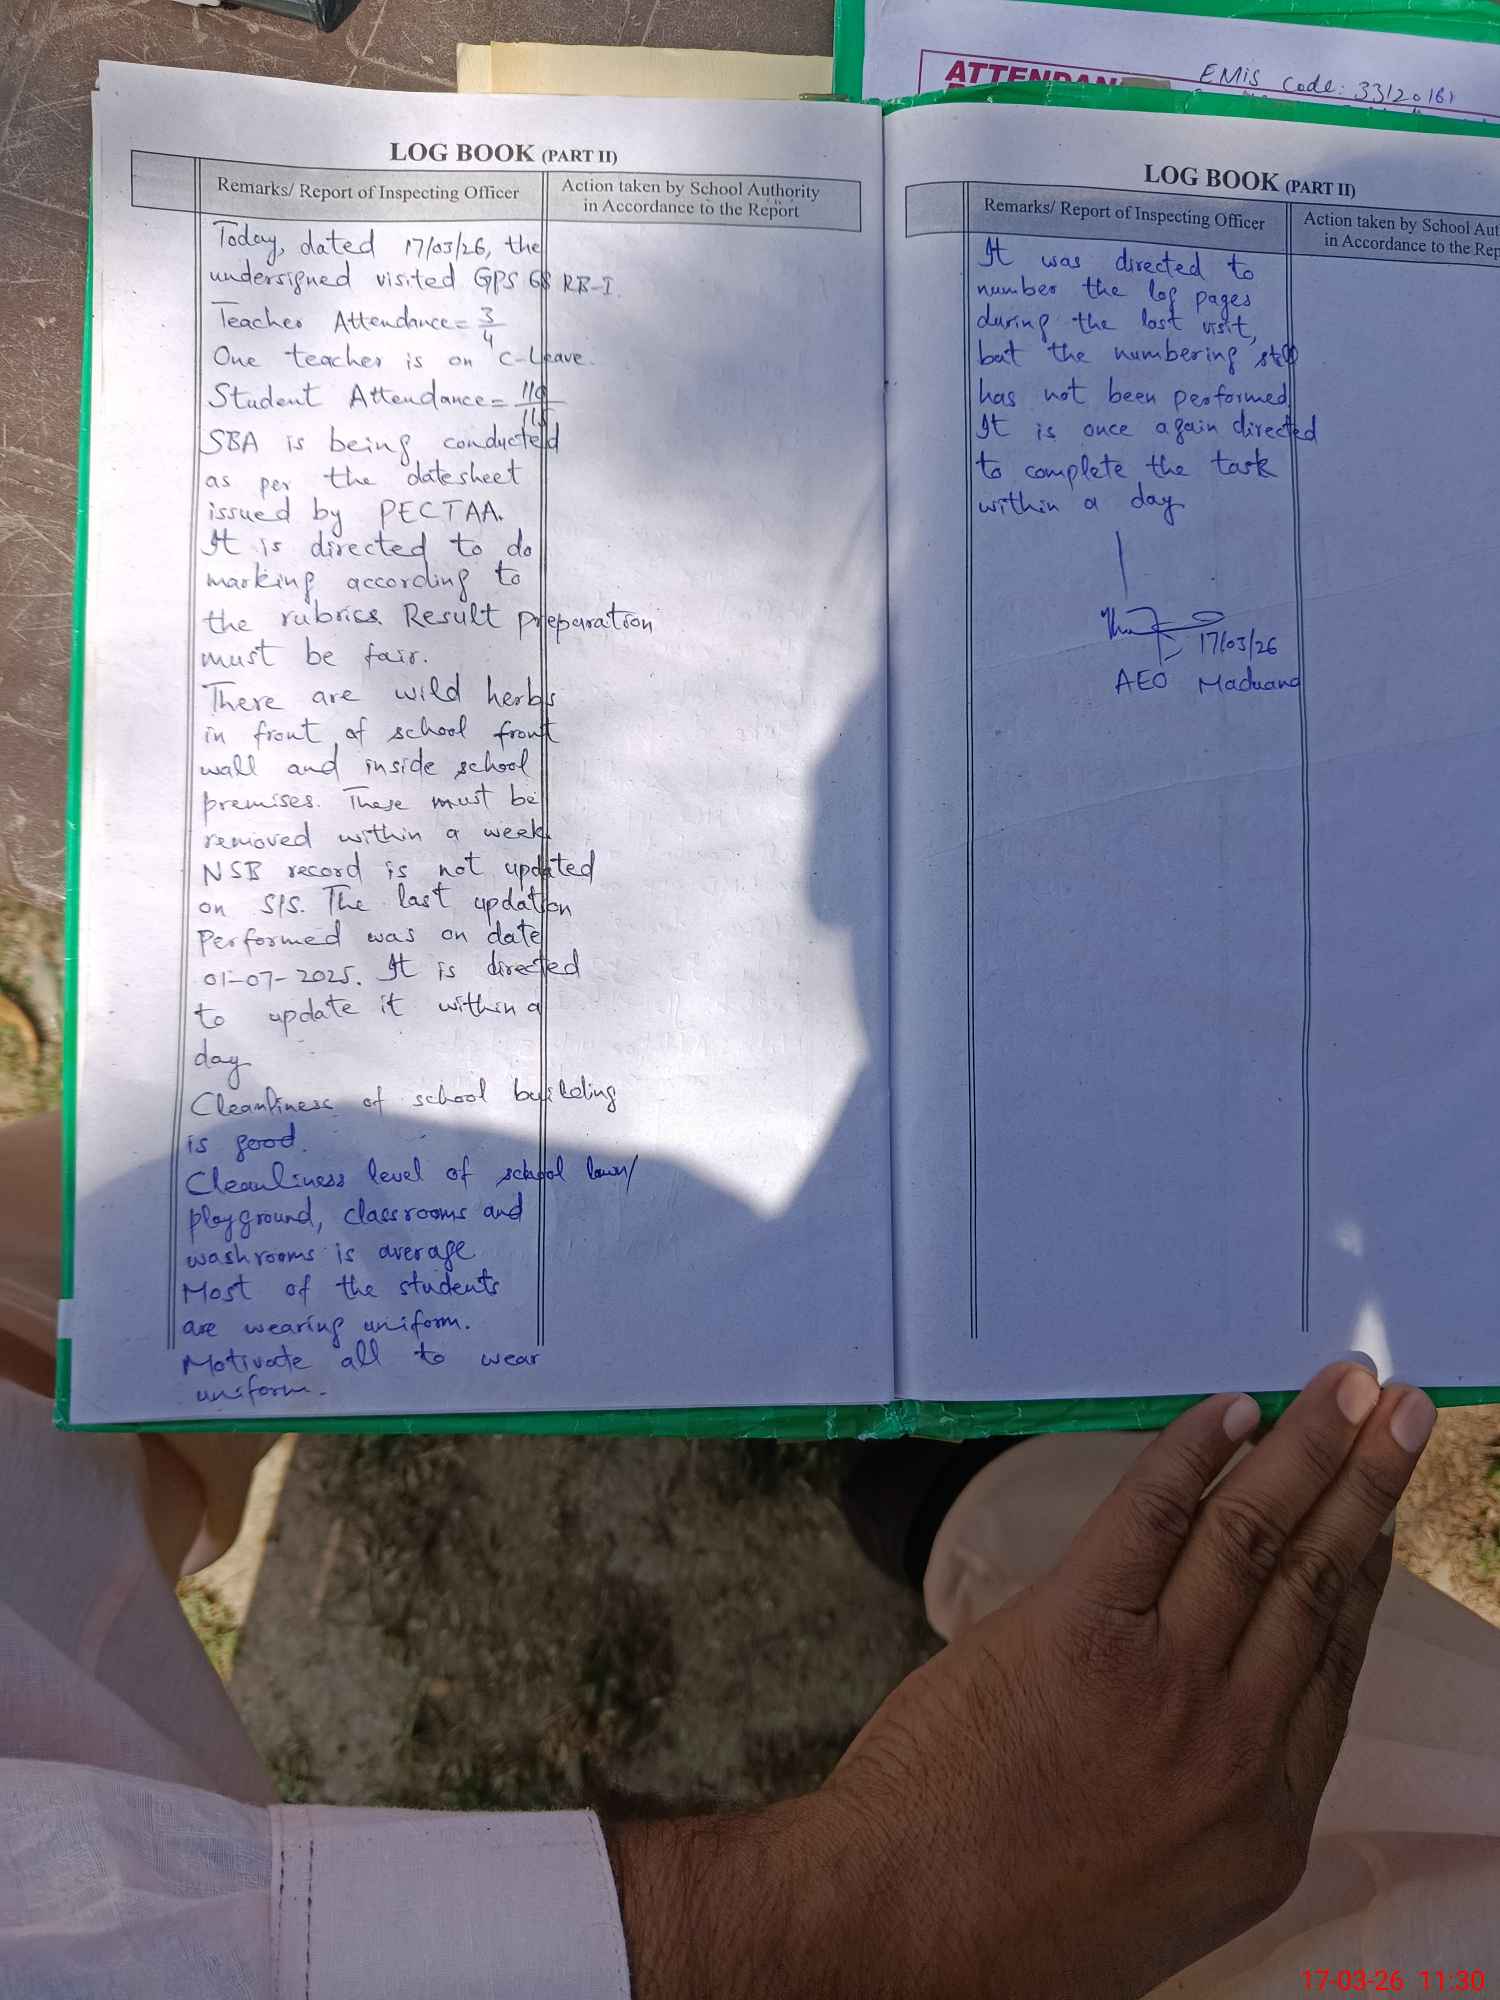 ATTENDAN
EMIS Code: 33120161
LOG BOOK (PART II)
Remarks/ Report of Inspecting Officer
Action taken by School Authority
in Accordance to the Report
Today, dated 17/03/26, the
undersigned visited GPS 68 RB-I.
Teacher Attendance = 3/4
One teacher is on C-Leave.
Student Attendance =
SBA is being conducted
as per the datesheet
issued by PECTAA.
It is directed to do
marking according to
the rubrics. Result preparation
must be fair.
There are wild herbs
in front of school front
wall and inside school
premises. These must be
removed within a week.
NSB record is not updated
on SIS. The last updation
Performed was on date
01-07-2025. It is directed
to update it within a
day
Cleanliness of school building
is good.
Cleanliness level of school lawn/
playground, classrooms and
washrooms is average
Most of the students
are wearing uniform.
Motivate all to wear
uniform.
LOG BOOK (PART II)
Remarks/ Report of Inspecting Officer
Action taken by School Aut
in Accordance to the Rep
It was directed to
number the log pages
during the last visit,
but the numbering still
has not been performed.
It is once again directed
to complete the task
within a day
17/03/26
AEO Maduana
17-03-26 11:30